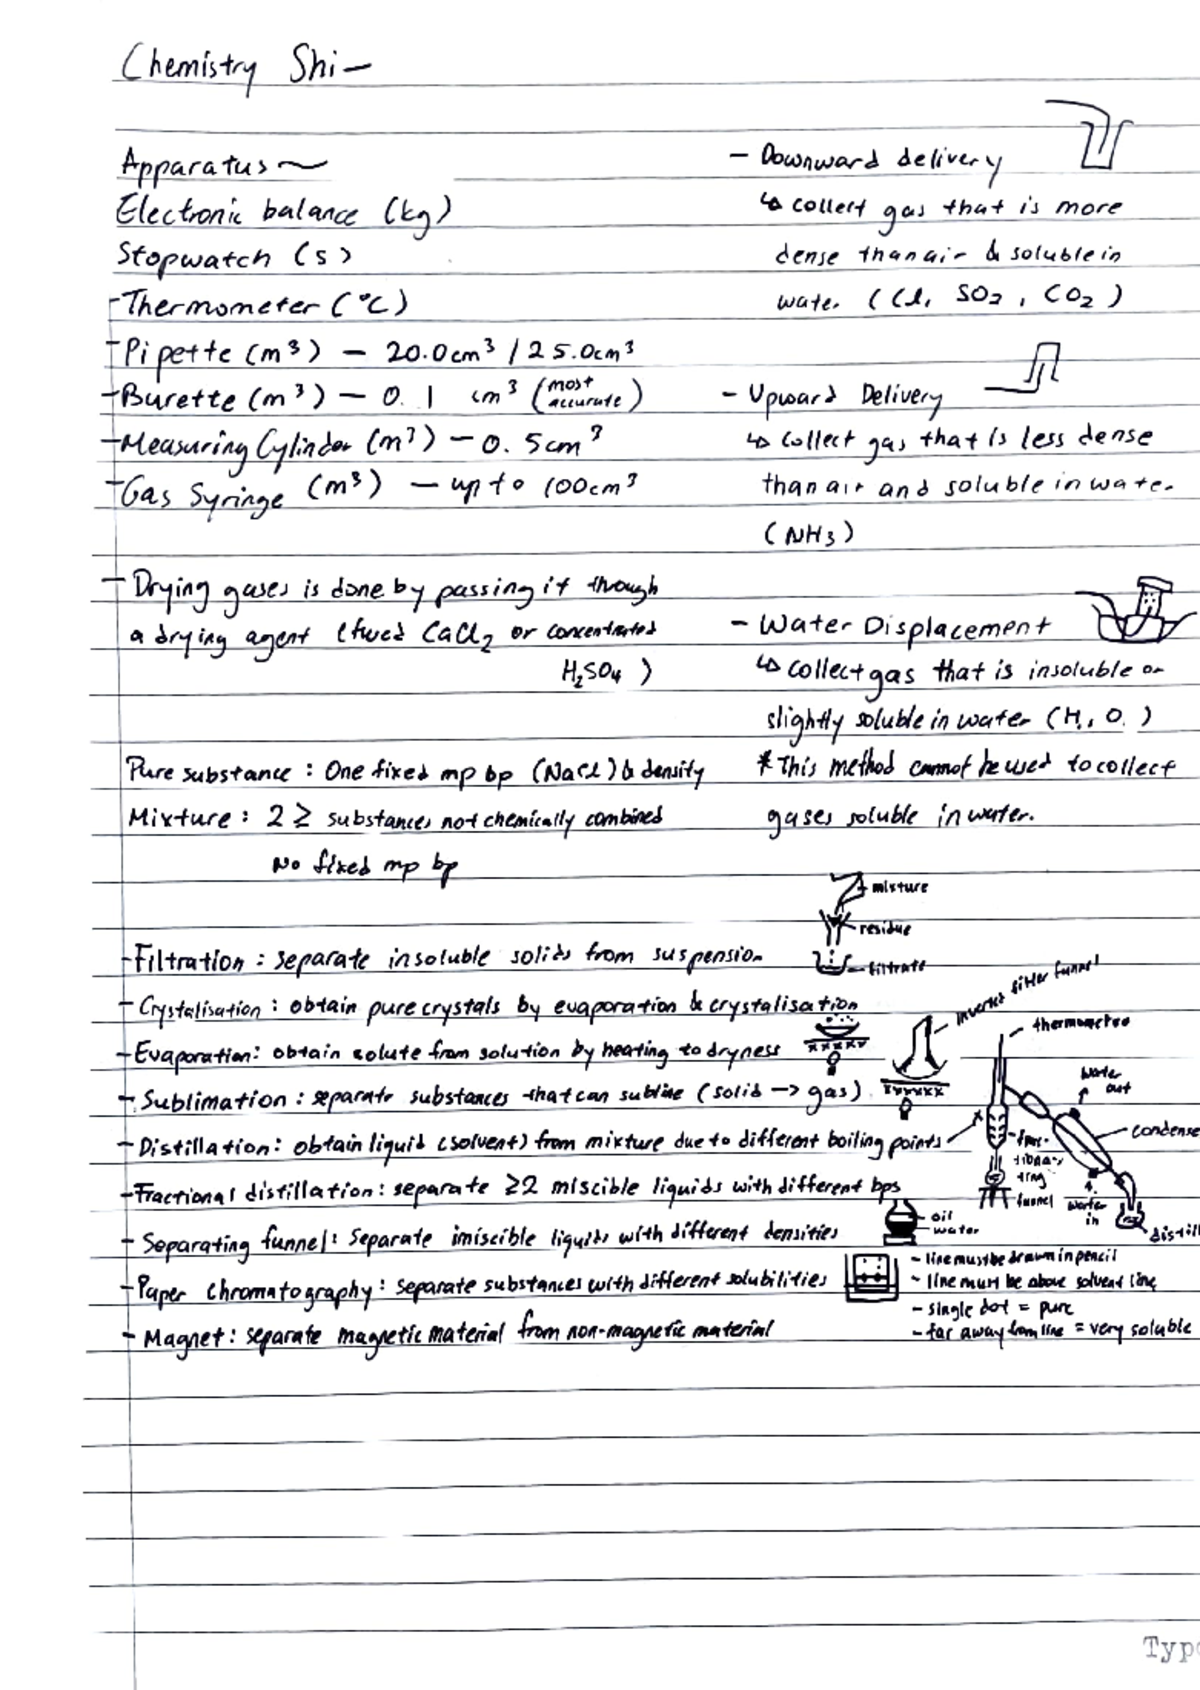 Chemistry Shi
Apparatus
Electronic balance (kg)
Stopwatch (s)
- Thermometer (°C)
- Pipette (m³) - 20.0cm³ / 25.0cm³
- Burette (m³) - 0.1 cm³ (most accurate)
- Measuring Cylinder (m³) - 0.5cm³
- Gas Syringe (m³) - up to 100cm³
- Drying gases is done by passing it through
a drying agent (fused CaCl₂ or concentrated
H₂SO₄)
Pure substance : One fixed mp bp (NaCl) & density
Mixture : 2 ≥ substances not chemically combined
No fixed mp bp
- Downward delivery
↳ collect gas that is more
dense than air & soluble in
water (Cl, SO₂, CO₂)
- Upward Delivery
↳ collect gas that is less dense
than air and soluble in water.
(NH₃)
- Water Displacement
↳ collect gas that is insoluble or
slightly soluble in water (H, O)
* This method cannot be used to collect
gases soluble in water.
- Filtration : separate insoluble solids from suspension
mixture
residue
filtrate
- Crystalisation : obtain pure crystals by evaporation & crystalisation
- Evaporation: obtain solute from solution by heating to dryness
inverted filter funnel
- Sublimation : separate substances that can sublime (solid → gas)
- Distillation: obtain liquid (solvent) from mixture due to different boiling points
thermometer
water out
condense
water in
distill
funnel
- Fractional distillation : separate ≥2 miscible liquids with different bps
- Separating funnel : Separate imiscible liquids with different densities
oil
water
- Paper chromatography : separate substances with different solubilities
- line must be drawn in pencil
- line must be above solvent line
- single dot = pure
- far away from line = very soluble
- Magnet : separate magnetic material from non-magnetic material